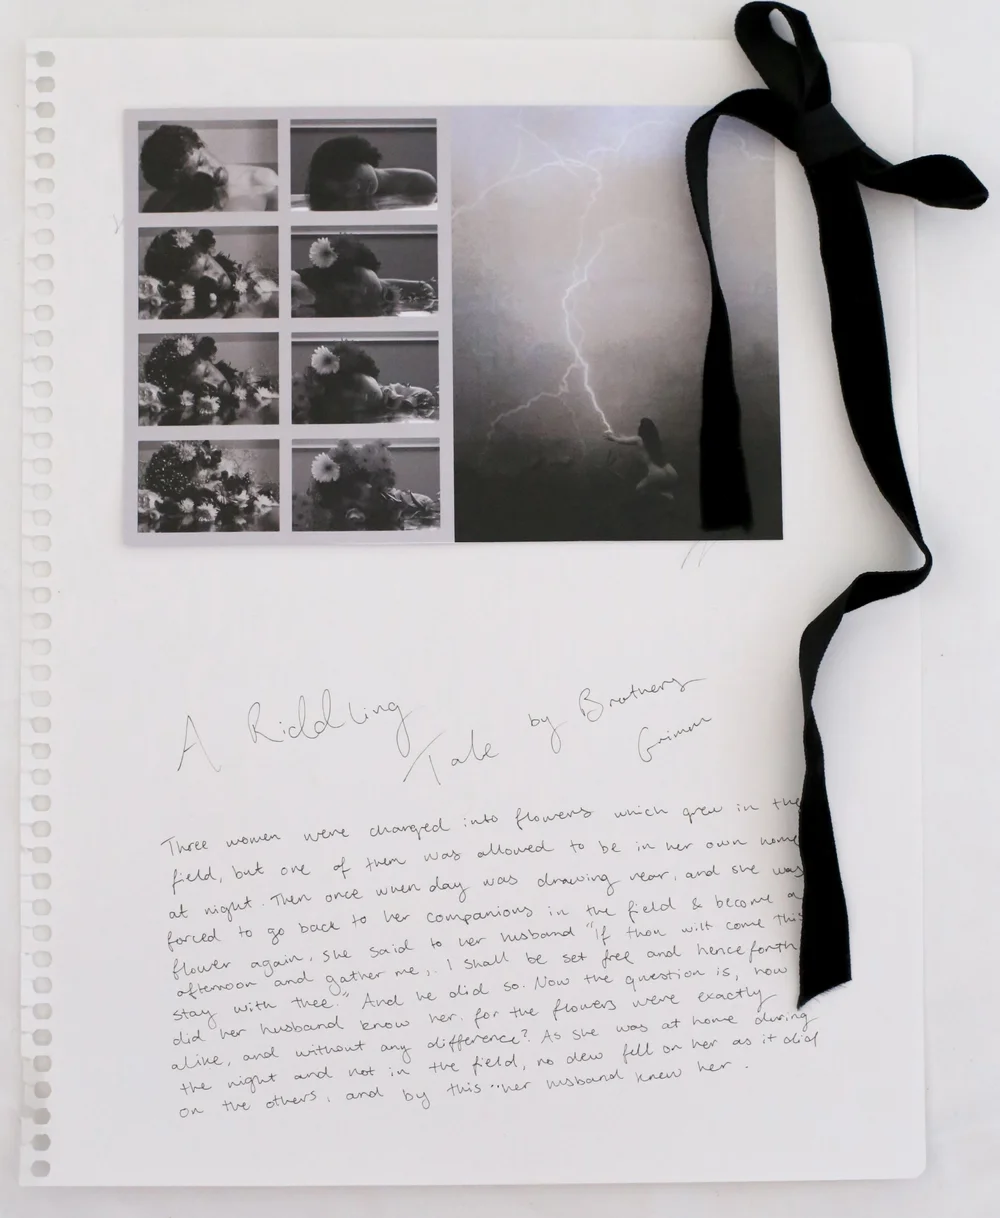 A Riddling
Tale by Brothers
Grimm
Three women were changed into flowers which grew in the
field, but one of them was allowed to be in her own home
at night. Then once when day was drawing near, and she was
forced to go back to her companions in the field & become a
flower again, she said to her husband "If thou wilt come this
afternoon and gather me, I shall be set free and henceforth
stay with thee." And he did so. Now the question is, how
did her husband know her. for the flowers were exactly
alike, and without any difference? As she was at home during
the night and not in the field, no dew fell on her as it did
on the others, and by this her husband knew her.